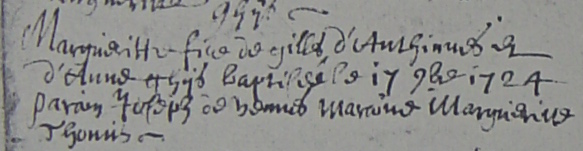 ghÿs
Margueritte fice de gilles d'Authinnes et
d'Anne ghÿs baptisée le 17 9bre 1724
parain Joseph de vennes maraine Margueritte
Thonis